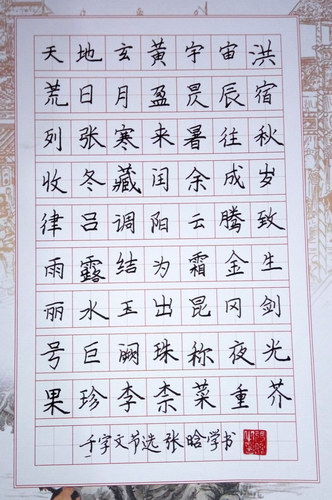 天地玄黄宇宙洪
荒日月盈昃辰宿
列张寒来暑往秋
收冬藏闰余成岁
律吕调阳云腾致
雨露结为霜金生
丽水玉出昆冈剑
号巨阙珠称夜光
果珍李柰菜重芥
千字文节选张晗学书